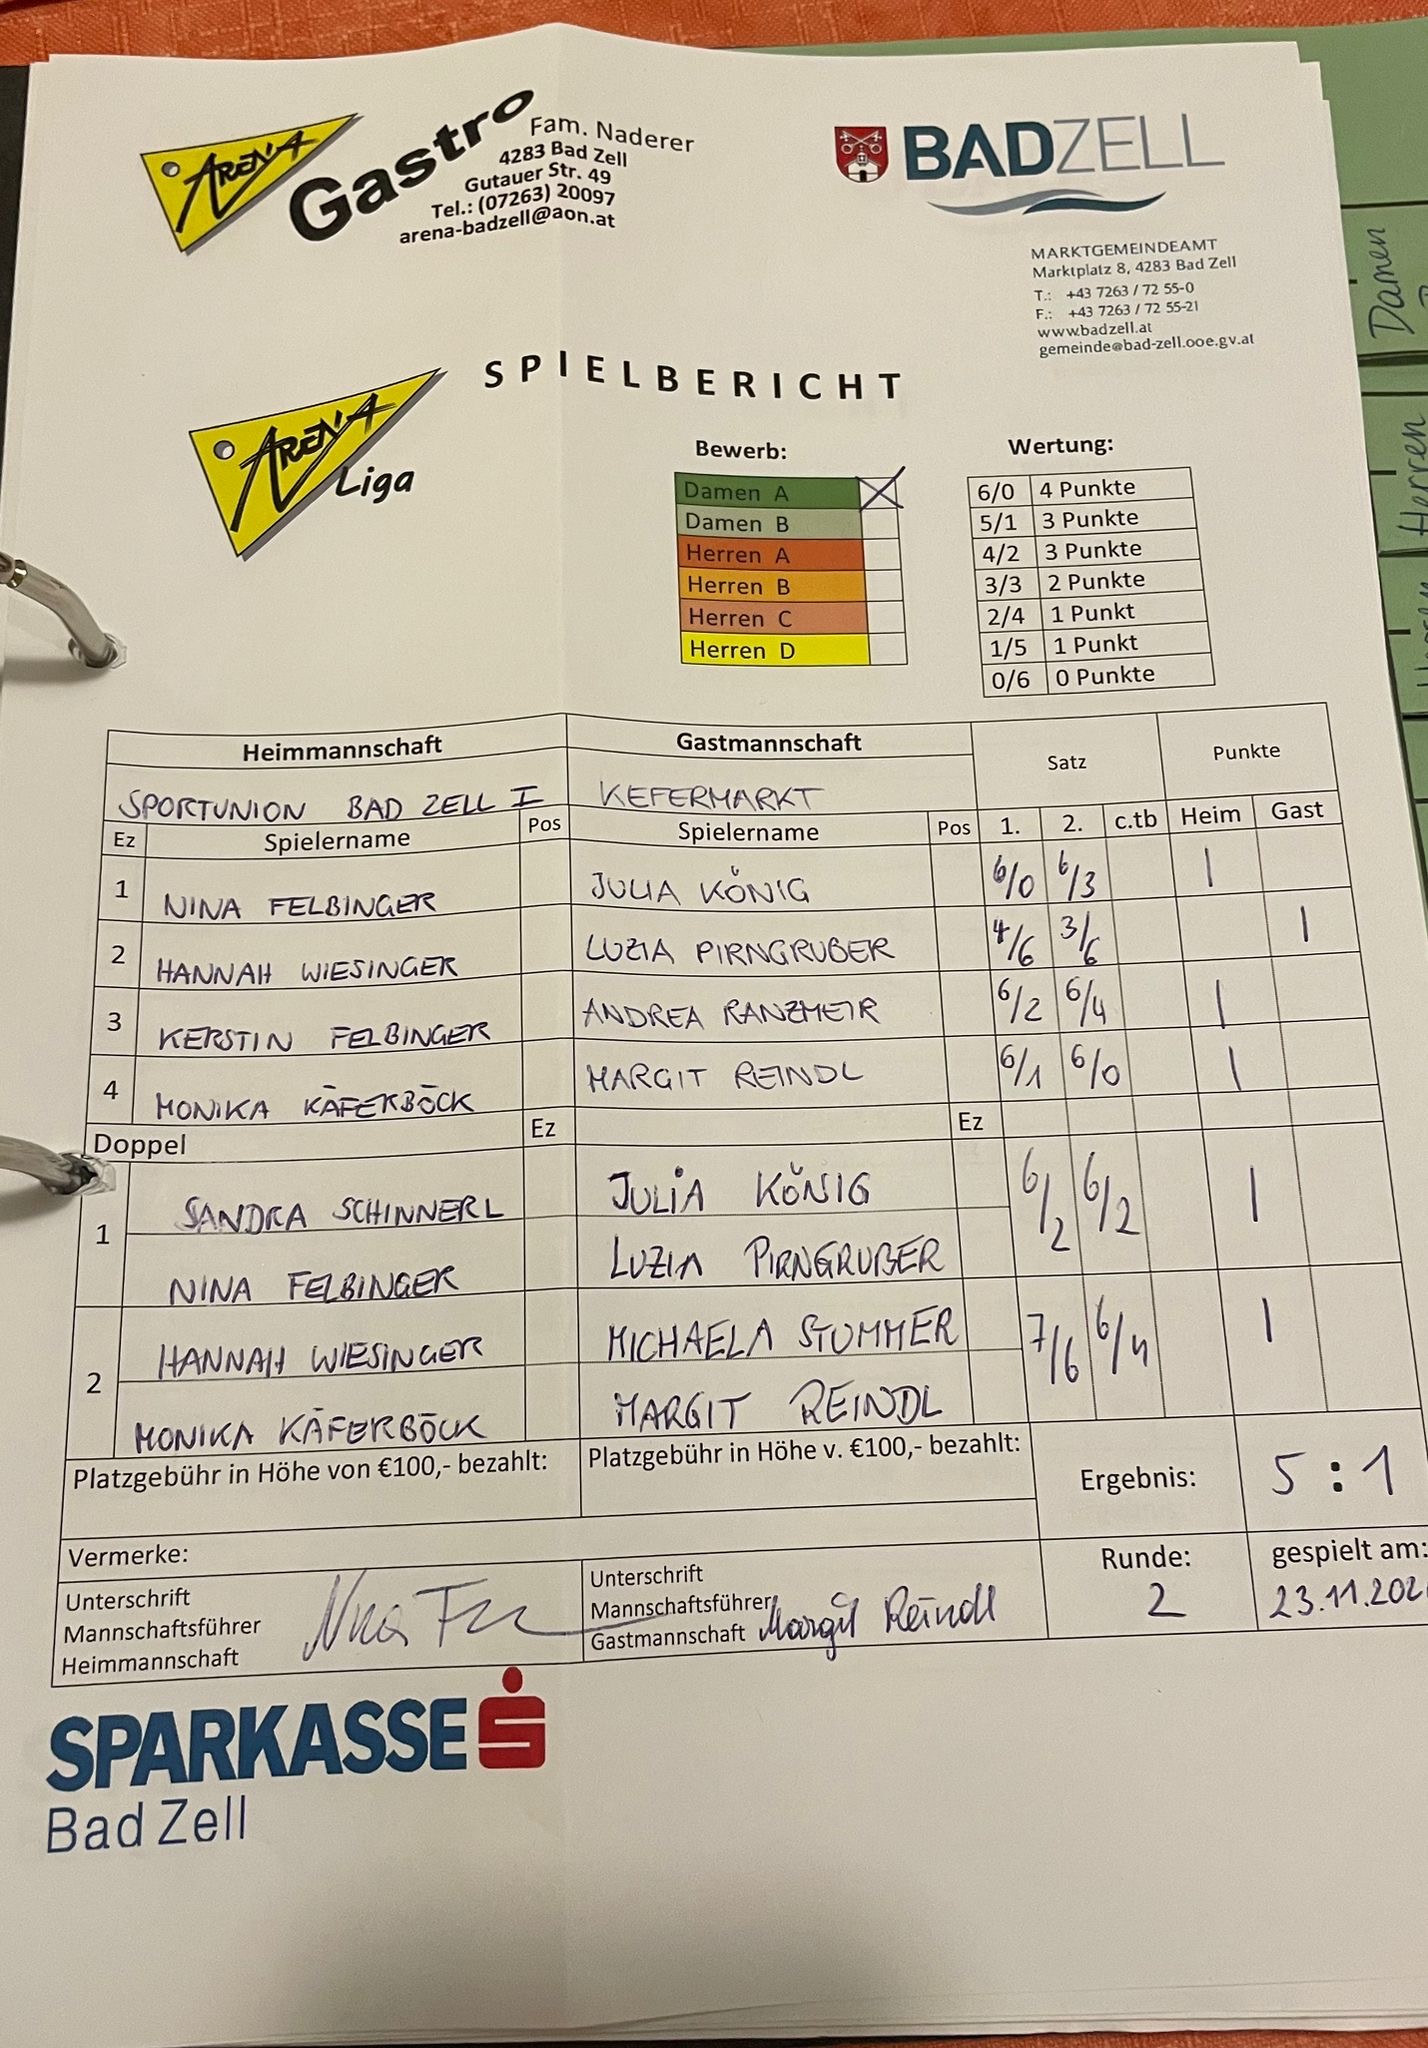 ARENA Gastro
Fam. Naderer
4283 Bad Zell
Gutauer Str. 49
Tel.: (07263) 20097
arena-badzell@aon.at
BADZELL
MARKTGEMEINDEAMT
Marktplatz 8, 4283 Bad Zell
T.: +43 7263 / 72 55-0
F.: +43 7263 / 72 55-21
www.badzell.at
gemeinde@bad-zell.ooe.gv.at
Damen
Herren
SPIELBERICHT
ARENA Liga
Bewerb: Wertung:
Damen A X 6/0 4 Punkte
Damen B 5/1 3 Punkte
Herren A 4/2 3 Punkte
Herren B 3/3 2 Punkte
Herren C 2/4 1 Punkt
Herren D 1/5 1 Punkt
0/6 0 Punkte
Heimmannschaft Gastmannschaft Satz Punkte
SPORTUNION BAD ZELL I KEFERMARKT
Ez Spielername Pos Spielername Pos 1. 2. c.tb Heim Gast
1 NINA FELBINGER JULIA KÖNIG 6/0 6/3 |
2 HANNAH WIESINGER LUZIA PIRNGRUBER 4/6 3/6 |
3 KERSTIN FELBINGER ANDREA RANZMEIR 6/2 6/4 |
4 MONIKA KÄFERBÖCK MARGIT REINDL 6/1 6/0 |
Doppel Ez Ez
1 SANDRA SCHINNERL JULIA KÖNIG 6/2 6/2 |
NINA FELBINGER LUZIA PIRNGRUBER
2 HANNAH WIESINGER MICHAELA STUMMER 7/6 6/4 |
MONIKA KÄFERBÖCK MARGIT REINDL
Platzgebühr in Höhe von €100,- bezahlt: Platzgebühr in Höhe v. €100,- bezahlt: Ergebnis: 5 : 1
Vermerke:
Unterschrift Mannschaftsführer Heimmannschaft
Unterschrift Mannschaftsführer Gastmannschaft Margit Reindl
Runde: 2
gespielt am: 23.11.202
SPARKASSE
Bad Zell